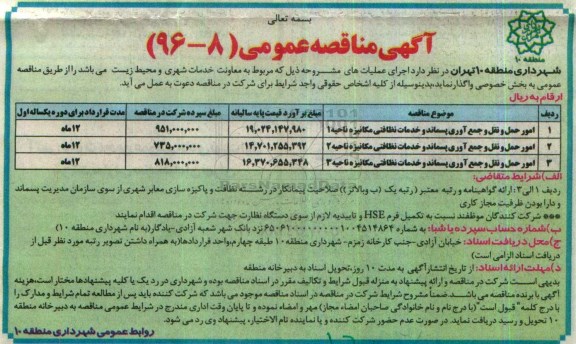 بسمه تعالی
آگهی مناقصه عمومی (۸-۹۶)
منطقه ۱۰
شهرداری منطقه ۱۰ تهران در نظر دارد اجرای عملیات های مشروحه ذیل که مربوط به معاونت خدمات شهری و محیط زیست می باشد را از طریق مناقصه
عمومی به بخش خصوصی واگذار نماید. بدینوسیله از کلیه اشخاص حقوقی واجد شرایط برای شرکت در مناقصه دعوت به عمل می آید.
ارقام به ریال
ردیف موضوع مناقصه مبلغ برآورد قیمت پایه سالیانه مبلغ سپرده شرکت در مناقصه مدت قرارداد برای دوره یکساله اول
۱ امور حمل و نقل و جمع آوری پسماند و خدمات نظافتی مکانیزه ناحیه ۱ ۱۹,۰۲۴,۱۴۷,۹۸۰ ۹۵۱,۰۰۰,۰۰۰ ۱۲ ماه
۲ امور حمل و نقل و جمع آوری پسماند و خدمات نظافتی مکانیزه ناحیه ۲ ۱۴,۷۰۱,۲۵۵,۳۹۲ ۷۳۵,۰۰۰,۰۰۰ ۱۲ ماه
۳ امور حمل و نقل و جمع آوری پسماند و خدمات نظافتی مکانیزه ناحیه ۳ ۱۶,۳۷۰,۶۵۵,۳۳۸ ۸۱۸,۰۰۰,۰۰۰ ۱۲ ماه
الف) شرایط متقاضی:
ردیف ۱ الی ۳: ارائه گواهینامه و رتبه معتبر (رتبه یک (ب و بالاتر)) صلاحیت پیمانکار در رشته نظافت و پاکیزه سازی معابر شهری از سوی سازمان مدیریت پسماند
و دارا بودن ظرفیت مجاز کاری
** شرکت کنندگان موظفند نسبت به تکمیل فرم HSE و تاییدیه لازم از سوی دستگاه نظارت جهت شرکت در مناقصه اقدام نمایند
ب) شماره حساب سپرده یا شبا: به شماره نزد بانک شهر شعبه آزادی-یادگار (به نام شهرداری منطقه ۱۰)
ج) محل دریافت اسناد: خیابان آزادی- جنب کارخانه زمزم- شهرداری منطقه ۱۰ طبقه چهارم، واحد قراردادها (به همراه داشتن تصویر رتبه مورد نظر قبل از
دریافت اسناد الزامی است)
د) مهلت ارائه اسناد: از تاریخ انتشار آگهی به مدت ۱۰ روز، تحویل اسناد به دبیرخانه منطقه
بدیهی است شرکت در مناقصه و ارائه پیشنهاد به منزله قبول شرایط و تکالیف مقرر در اسناد مناقصه بوده و شهرداری در رد یک یا کلیه پیشنهادها مختار است، هزینه
آگهی با برنده مناقصه می باشد. ضمناً مشروح شرایط شرکت در مناقصه در اسناد مناقصه موجود می باشد که شرکت کننده باید پس از مطالعه تمام شرایط و مدارک را
با درج کلمه "قبول است" (با درج نام و نام خانوادگی صاحبان امضاء مجاز) مهر و امضاء نموده و تا پایان وقت اداری مندرج در شرایط عمومی مناقصه به دبیرخانه منطقه
۱۰ تحویل و رسید دریافت نماید. در صورت عدم حضور شرکت کننده و یا نماینده تام الاختیار، پیشنهاد وی رد می شود.
روابط عمومی شهرداری منطقه ۱۰